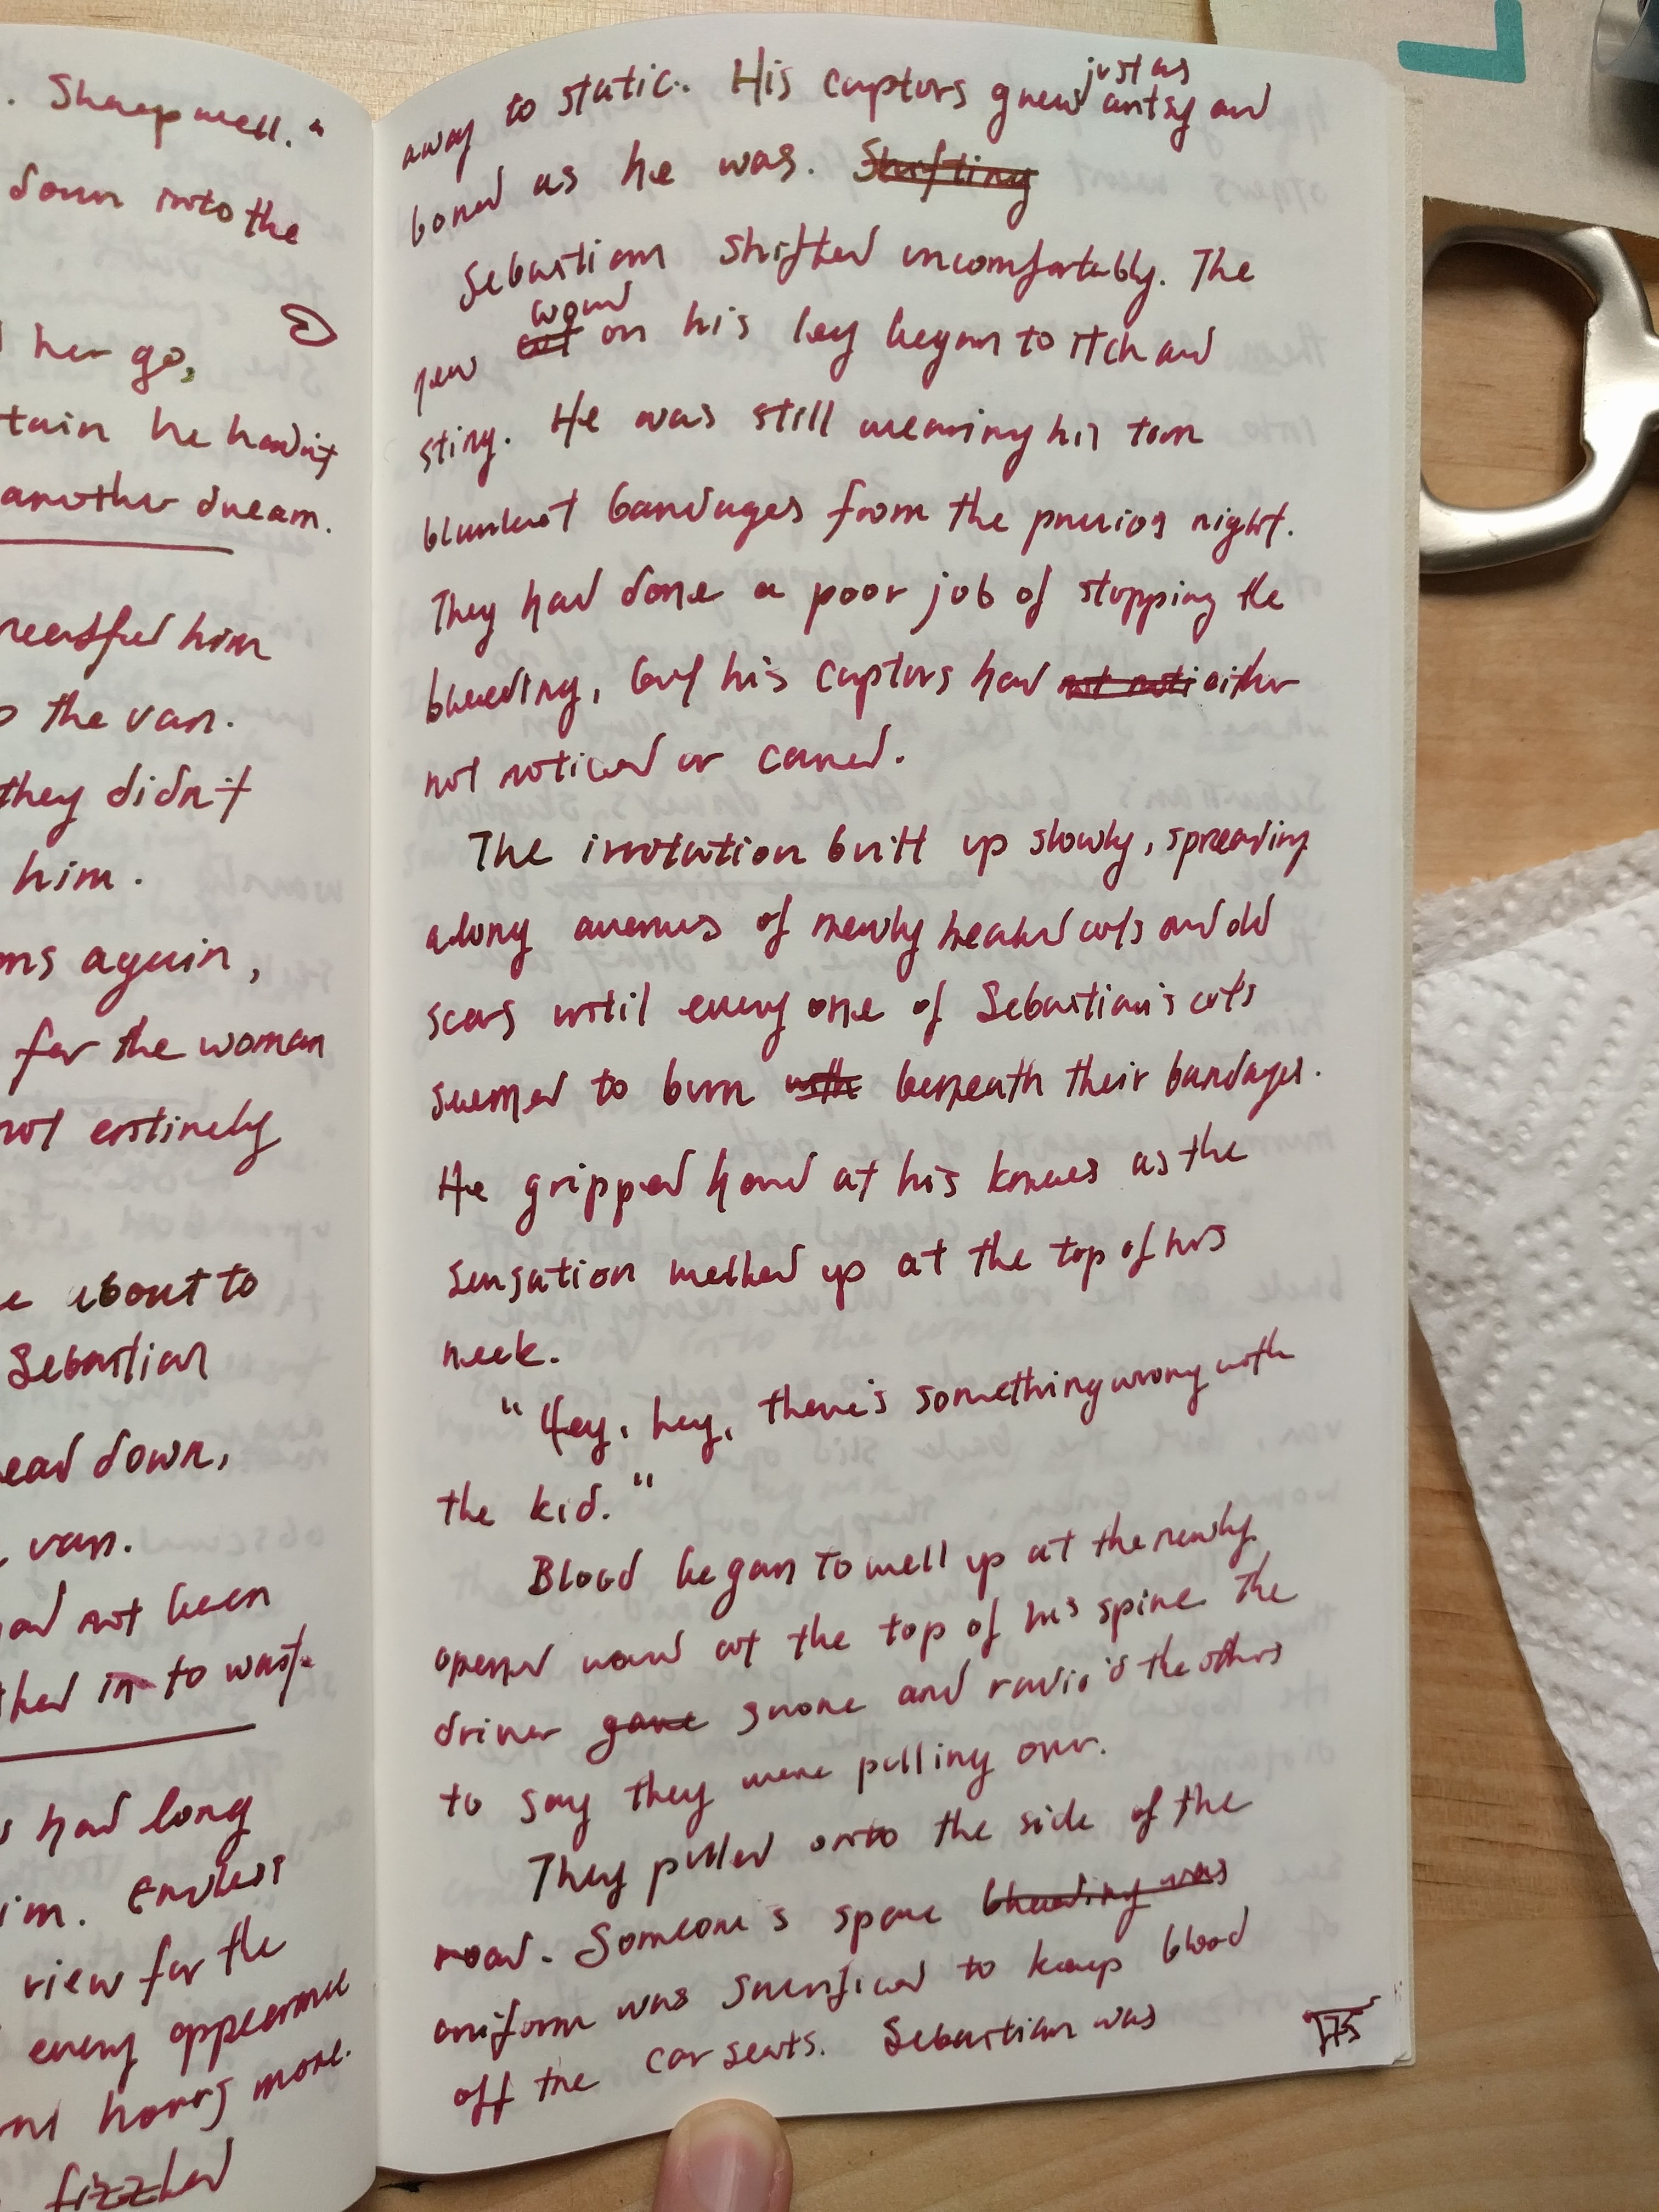 . Sleep well."
down into the
her go,
tain he hadn't
another dream.
him
the van.
they didn't
him.
ns again,
for the woman
not entirely
about to
Sebastian
ead down,
van.
ad not been
ther in to wait.
had long
im. Endless
view for the
every appearance
hours more.
fizzled
away to static. His captors grew just as antsy and
bored as he was. Shifting
Sebastian shifted uncomfortably. The
new cut wound on his leg began to itch and
sting. He was still wearing his torn
blanket bandages from the previos night.
They had done a poor job of stopping the
bleeding, but his captors had not noti either
not noticed or cared.
The irritation built up slowly, spreading
along avenues of newly healed cuts and old
scars until every one of Sebastian's cuts
seemed to burn with beneath their bandages.
He gripped hard at his knees as the
sensation welled up at the top of his
neck.
"Hey, hey, there's something wrong with
the kid."
Blood began to well up at the newly
opened wound at the top of his spine. The
driver gave swore and radio'd the others
to say they were pulling over.
They pulled onto the side of the
road. Someone's spare bleeding was
uniform was sacrificed to keep blood
off the car seats. Sebastian was
175